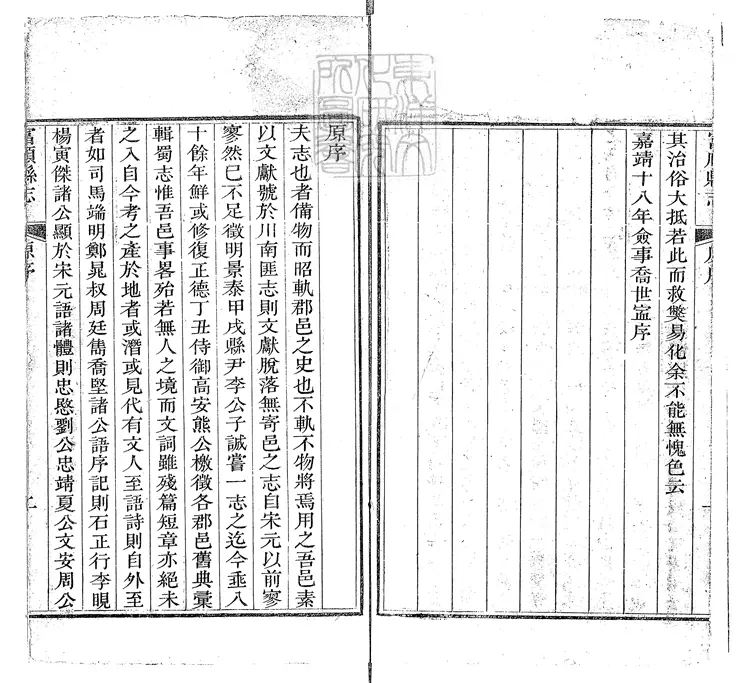 富順縣志
原序
其治俗大抵若此而救獘易化余不能無愧色云
嘉靖十八年僉事喬世寍序
原序
夫志也者備物而昭軌郡邑之史也不軌不物將焉用之吾邑素
以文獻號於川南匪志則文獻脫落無寄邑之志自宋元以前寥
寥然已不足徵明景泰甲戌縣尹李公子誠嘗一志之迄今垂八
十餘年鮮或修復正德丁丑侍御高安熊公檄徵各郡邑舊典彙
輯蜀志惟吾邑事畧殆若無人之境而文詞雖殘篇短章亦絕未
之入自今考之產於地者或潛或見代有文人至語詩則自外至
者如司馬端明鄭晁叔周廷雋喬堅諸公語序記則石正行李晛
楊寅傑諸公顯於宋元語諸體則忠愍劉公忠靖夏公文安周公
富順縣志
原序
二